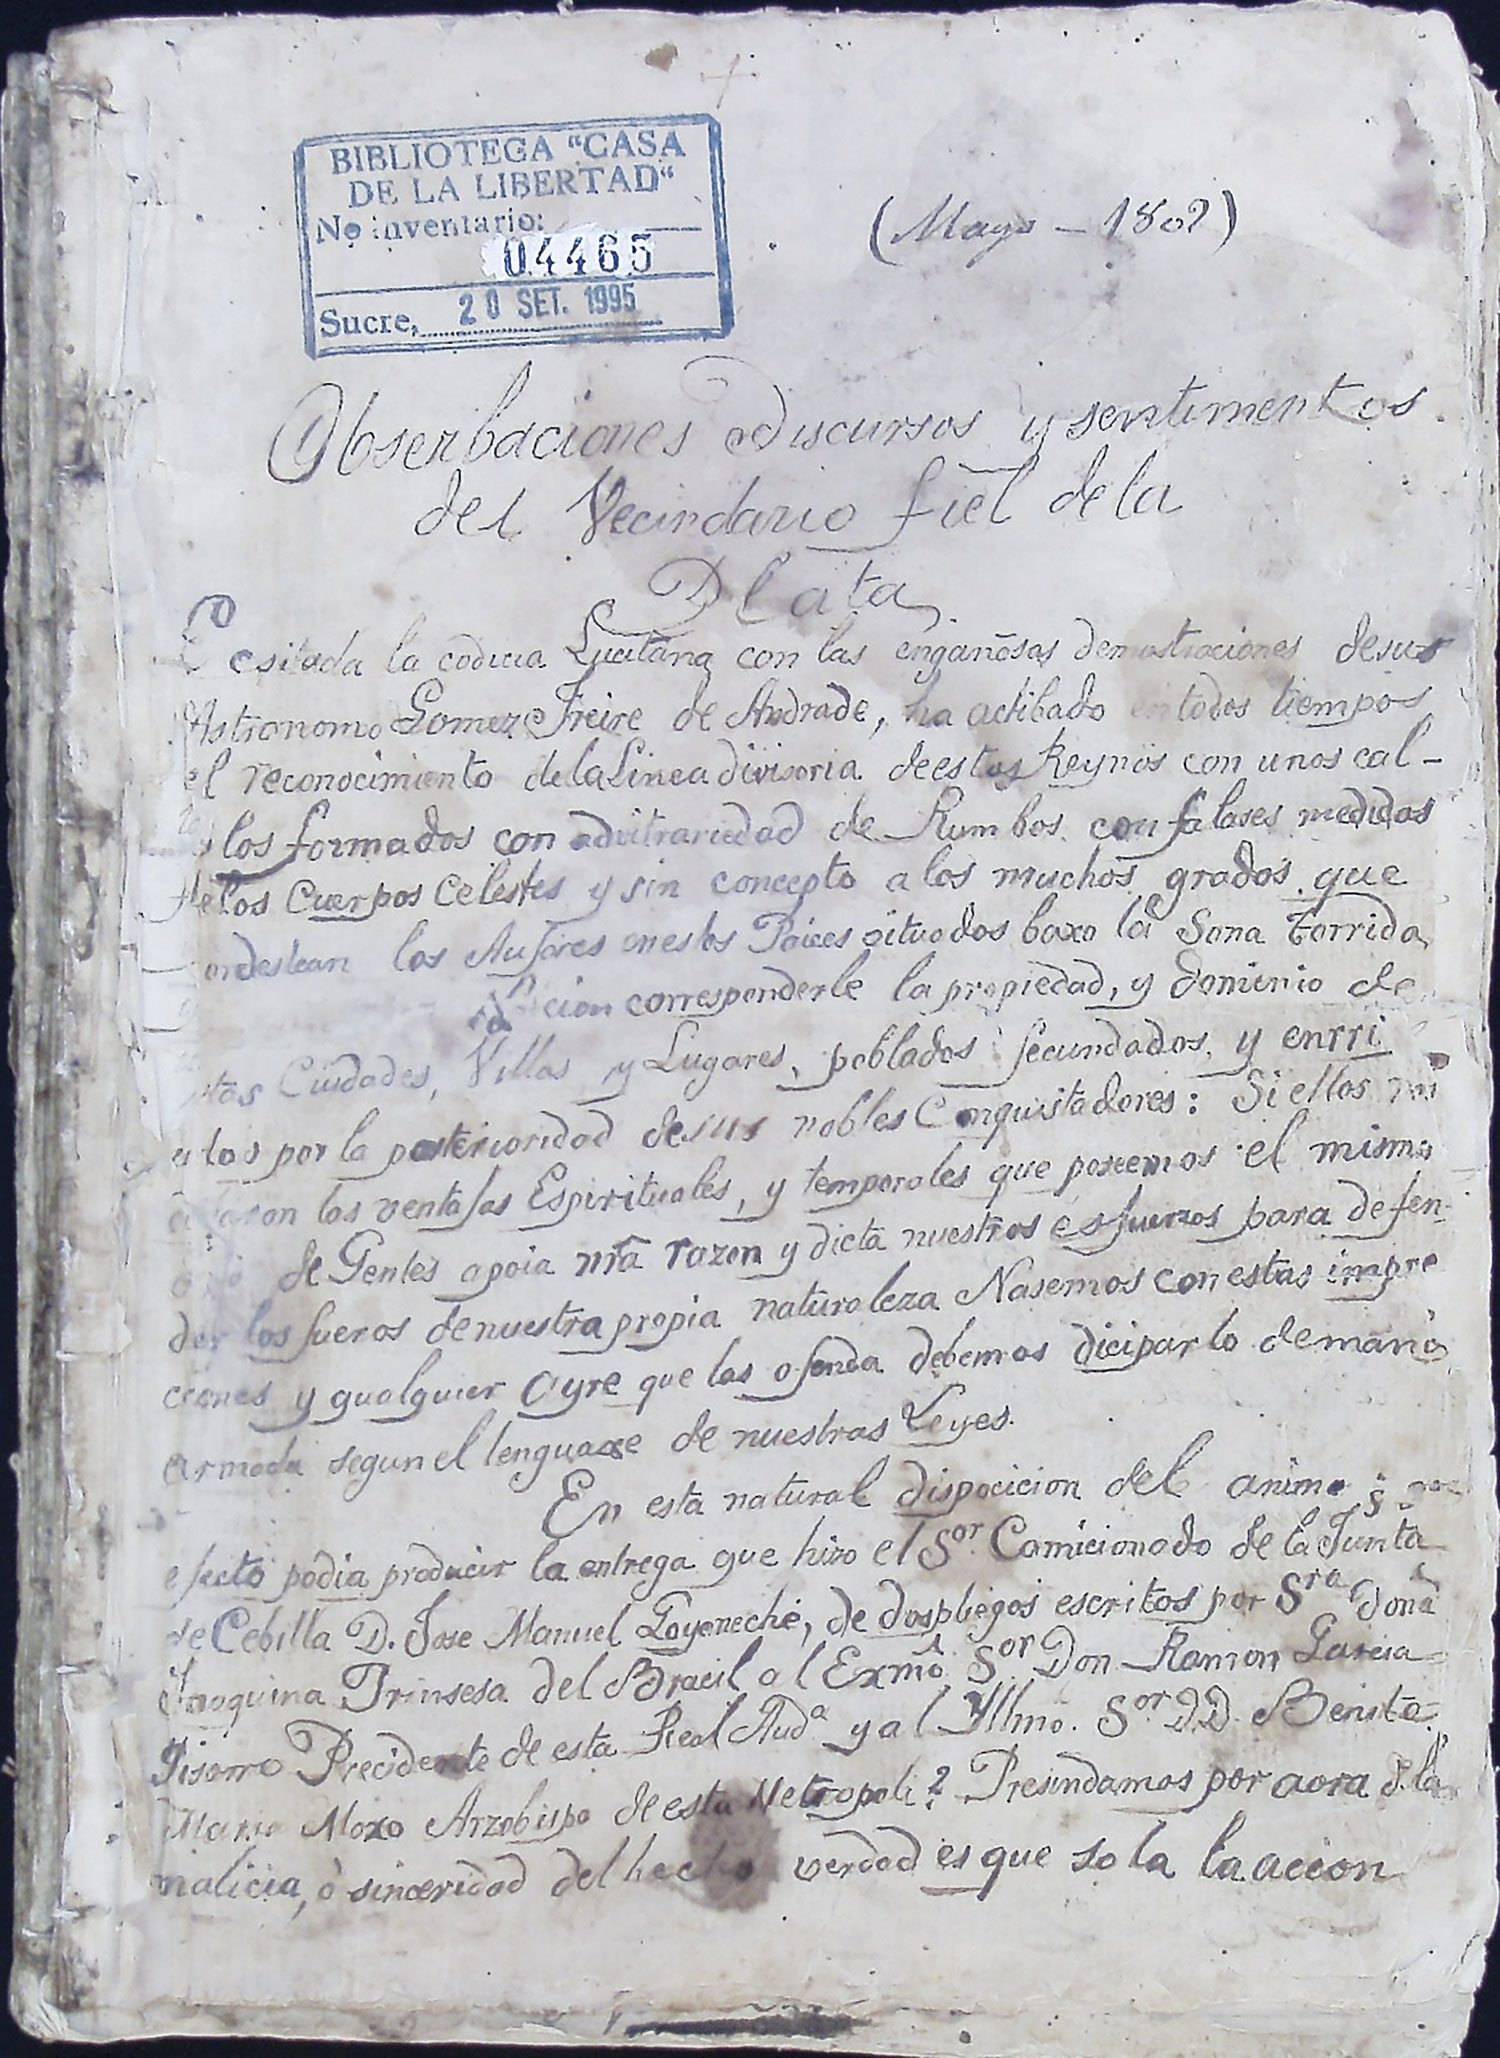 BIBLIOTECA "CASA
DE LA LIBERTAD"
No inventario:
04465
Sucre, 20 SET. 1995
(Mayo - 1809)
Obserbaciones Discursos y sentimentos
del Vecindario fiel de la
Plata
Esitada la codicia Lucitana con las engañosas demostraciones desus
Astronomo Gomez Freire de Andrade, ha actibado en todos tiempos
el reconocimiento dela Linea divisoria deestos Reynos con unos cal-
los formados con advitrariedad de Rumbos con falases medidas
delos Cuerpos Celestes y sin concepto a los muchos grados que
ordestean los Autores enestos Paices situados baxo la Sona torrida
cion corresponderle la propiedad, y dominio de
tas Ciudades, Villas y Lugares, poblados fecundados, y enrri
por la posterioridad desus nobles Conquistadores: Si ellos
las ventajas Espirituales, y temporales que poseemos el mismo
de Gentes apoia nrã razon y dicta nuestros esfuerzos para defen-
der los fueros denuestra propia naturaleza Nasemos con estas impre
ciones y qualquier ayre que las ofenda debemos diciparlo demano
armada segun el lenguaxe de nuestras Leyes.
En esta natural dispocicion del animo
efecto podia producir la entrega que hizo el Sor Comicionado de la Junta
de Cebilla D. Jose Manuel Goyeneche, de dos pliegos escritos por Sra Doña
Joaquina Prinsesa del Bracil al Exmõ Sor Don Ramon Garcia
Pisarro Precidente de esta Real Auda y al Yllmo. Sor D.D. Benito
Maria Moxo Arzobispo de esta Metropoli? Presindamos por aora d.la
malicia, ò sinceridad del hecho verdad es que sola la accion